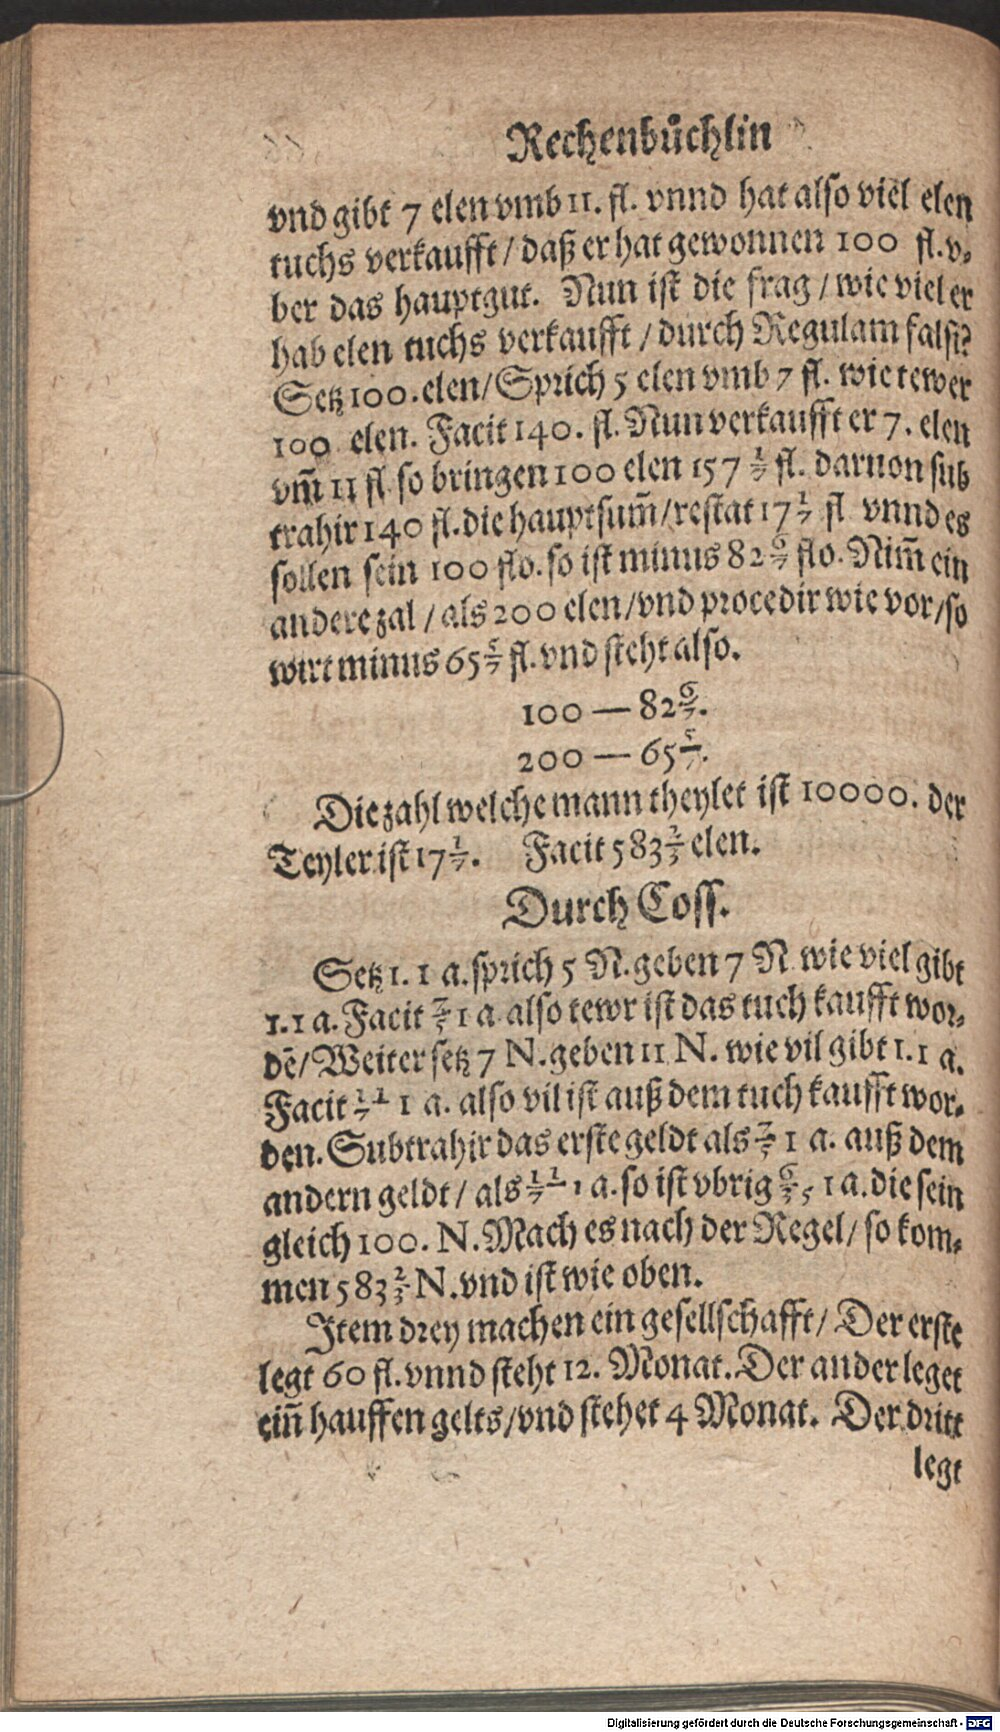 Rechenbůchlin
vnd gibt 7 elen vmb 11. fl. vnnd hat also viel elen
tuchs verkaufft / daß er hat gewonnen 100 fl. v⸗
ber das hauptgut. Nun ist die frag / wie viel er
hab elen tuchs verkaufft / durch Regulam falsi?
Setz 100. elen / Sprich 5 elen vmb 7 fl. wie tewer
100 elen. Facit 140. fl. Nun verkaufft er 7. elen
vm̃ 11 fl so bringen 100 elen 157 1/7 fl. daruon sub
trahir 140 fl. die hauptsum̃ / restat 17 1/7 fl vnnd es
sollen sein 100 flo. so ist minus 82 6/7 flo. Nim̃ ein
andere zal / als 200 elen / vnd procedir wie vor / so
wirt minus 65 5/7 fl. vnd steht also.
100 — 82 6/7.
200 — 65 5/7.
Die zahl welche mann theylet ist 10000. der
Teyler ist 17 1/7. Facit 583 2/3 elen.
Durch Coss.
Setz 1. 1 a. sprich 5 N. geben 7 N wie viel gibt
1. 1 a. Facit 7/5 1 a also tewr ist das tuch kaufft wor⸗
dẽ / Weiter setz 7 N. geben 11 N. wie vil gibt 1. 1 a.
Facit 11/7 1 a. also vil ist auß dem tuch kaufft wor⸗
den. Subtrahir das erste geldt als 7/5 1 a. auß dem
andern geldt / als 11/7 1 a. so ist vbrig 6/35 1 a. die sein
gleich 100. N. Mach es nach der Regel / so kom⸗
men 583 2/3 N. vnd ist wie oben.
Item drey machen ein gesellschafft / Der erste
legt 60 fl. vnnd steht 12. Monat. Der ander leget
ein̄ hauffen gelts / vnd stehet 4 Monat. Der dritt
legt
Digitalisierung gefördert durch die Deutsche Forschungsgemeinschaft - DFG